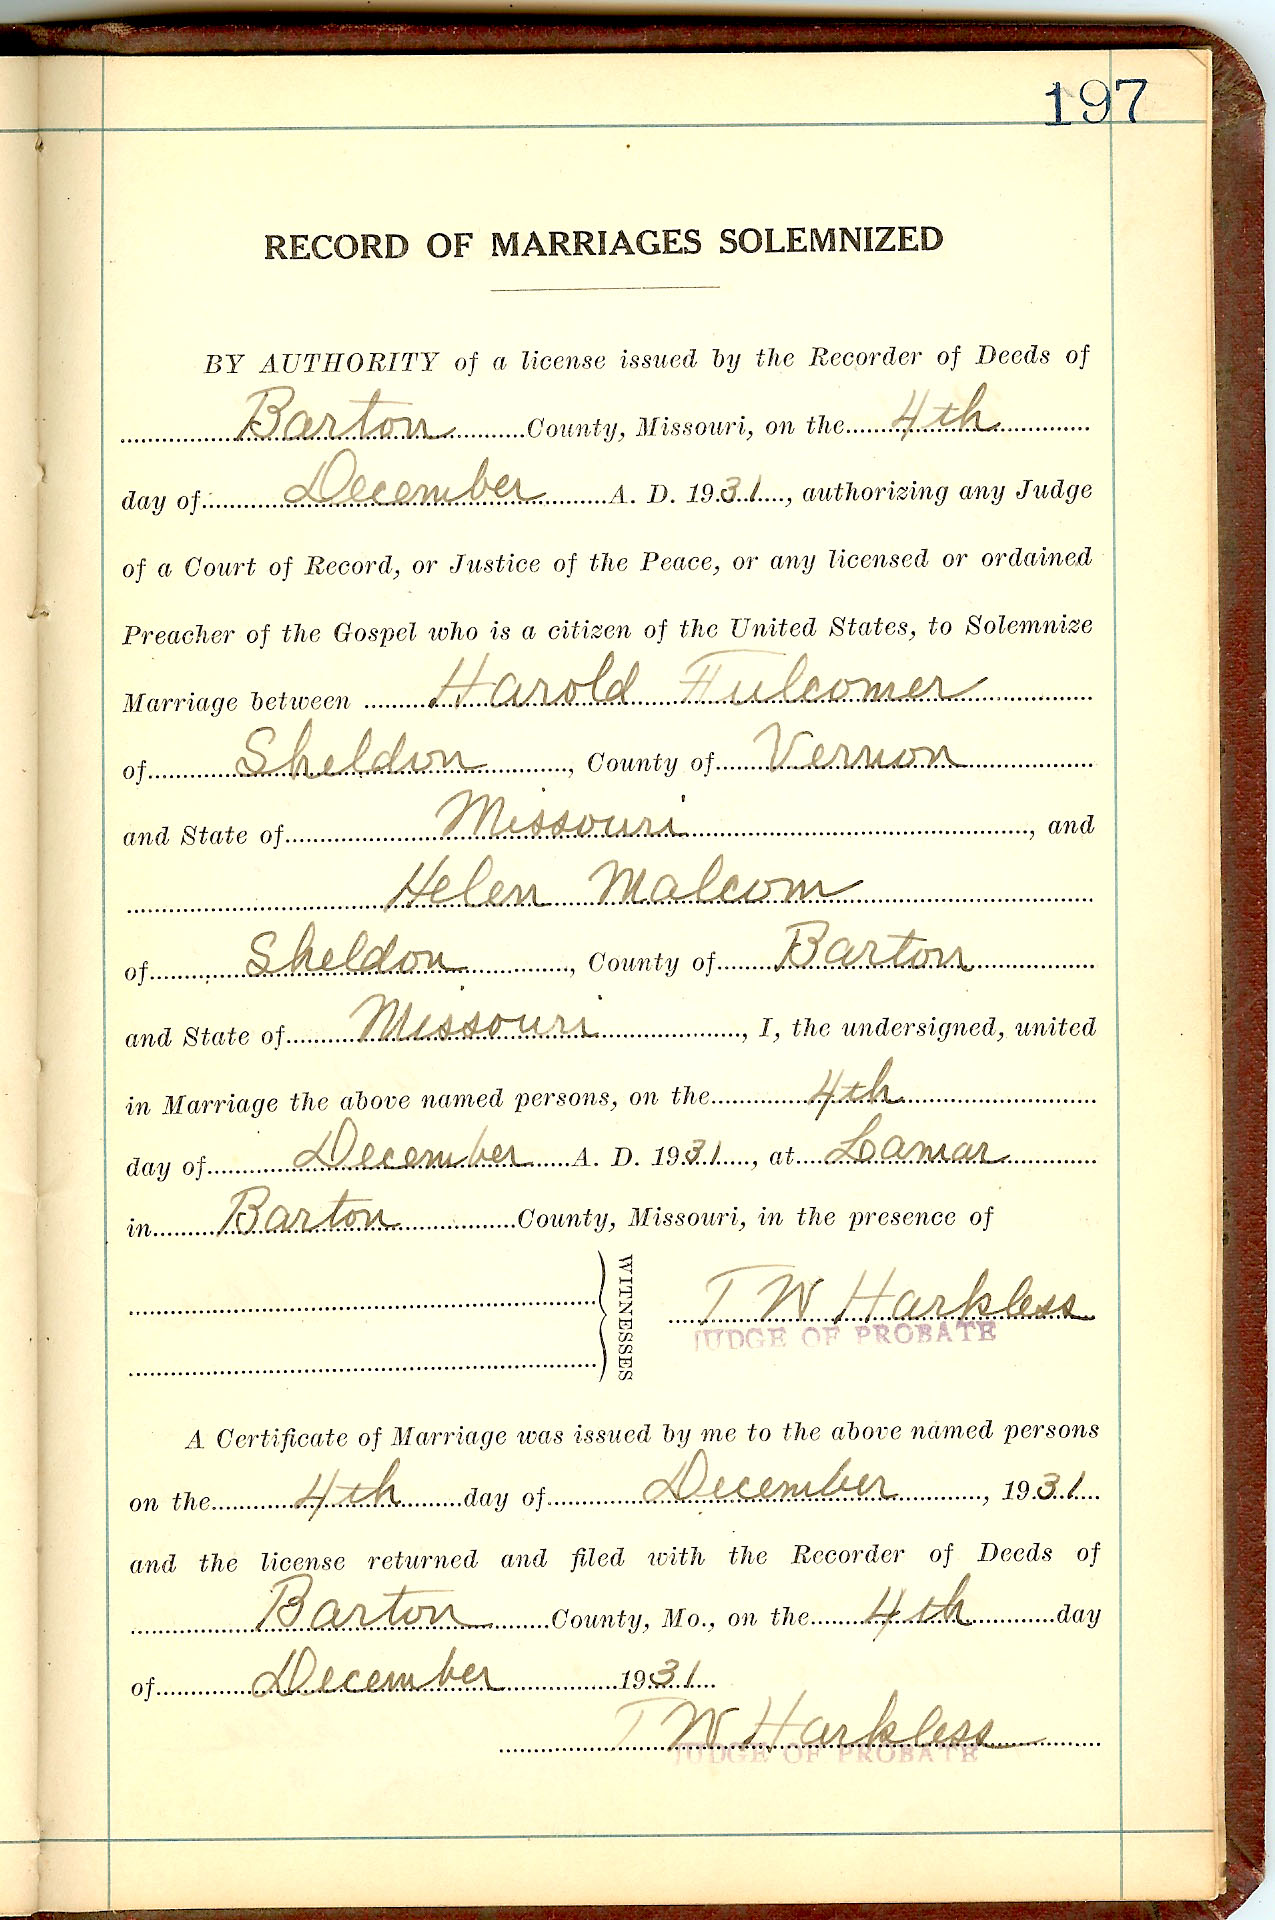 197
RECORD OF MARRIAGES SOLEMNIZED
BY AUTHORITY of a license issued by the Recorder of Deeds of
Barton County, Missouri, on the 4th
day of December A. D. 1931, authorizing any Judge
of a Court of Record, or Justice of the Peace, or any licensed or ordained
Preacher of the Gospel who is a citizen of the United States, to Solemnize
Marriage between Harold Fulcomer
of Sheldon, County of Vernon
and State of Missouri, and
Helen Malcom
of Sheldon, County of Barton
and State of Missouri, I, the undersigned, united
in Marriage the above named persons, on the 4th
day of December A. D. 1931, at Lamar
in Barton County, Missouri, in the presence of
WITNESSES
T W Harkless
JUDGE OF PROBATE
A Certificate of Marriage was issued by me to the above named persons
on the 4th day of December, 1931
and the license returned and filed with the Recorder of Deeds of
Barton County, Mo., on the 4th day
of December 1931
T W Harkless
JUDGE OF PROBATE